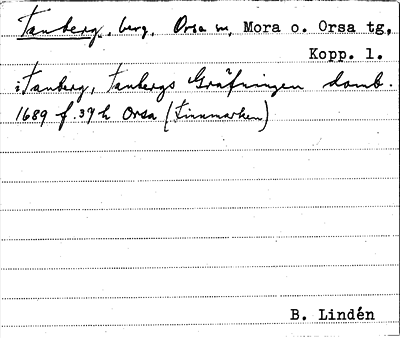 Tanberg, berg, Orsa sn, Mora o. Orsa tg,
Kopp. l.
: Tanberg, Tanbergs Gräfningen domb.
1689 f. 37 h Orsa (Finnmarken)
B. Lindén